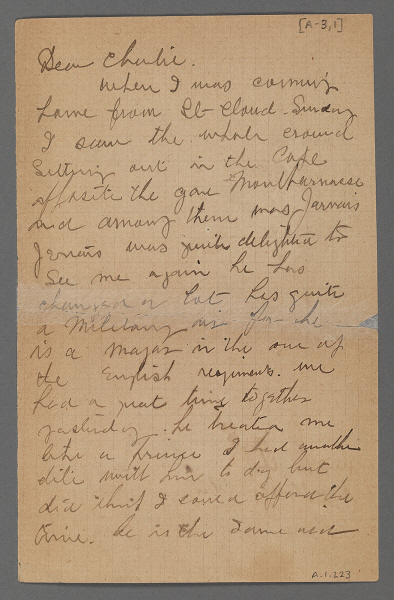 [A-3,1]
Dear Charlie.
When I was coming
home from St-Cloud-Sunday
I saw the whole crowd
Setting out in the Cafe
opposite the gare Montparnasse
and among them was Jarvais
Jervais was quite delighted to
See me again he has
changed a lot has quite
a Military air for he
is a Major in the one of
the English regiments. we
had a great time together
yesterday. he treated me
like a prince I had another
with him to day but
did think I could afford the
time. he is the Same old
A.1.223